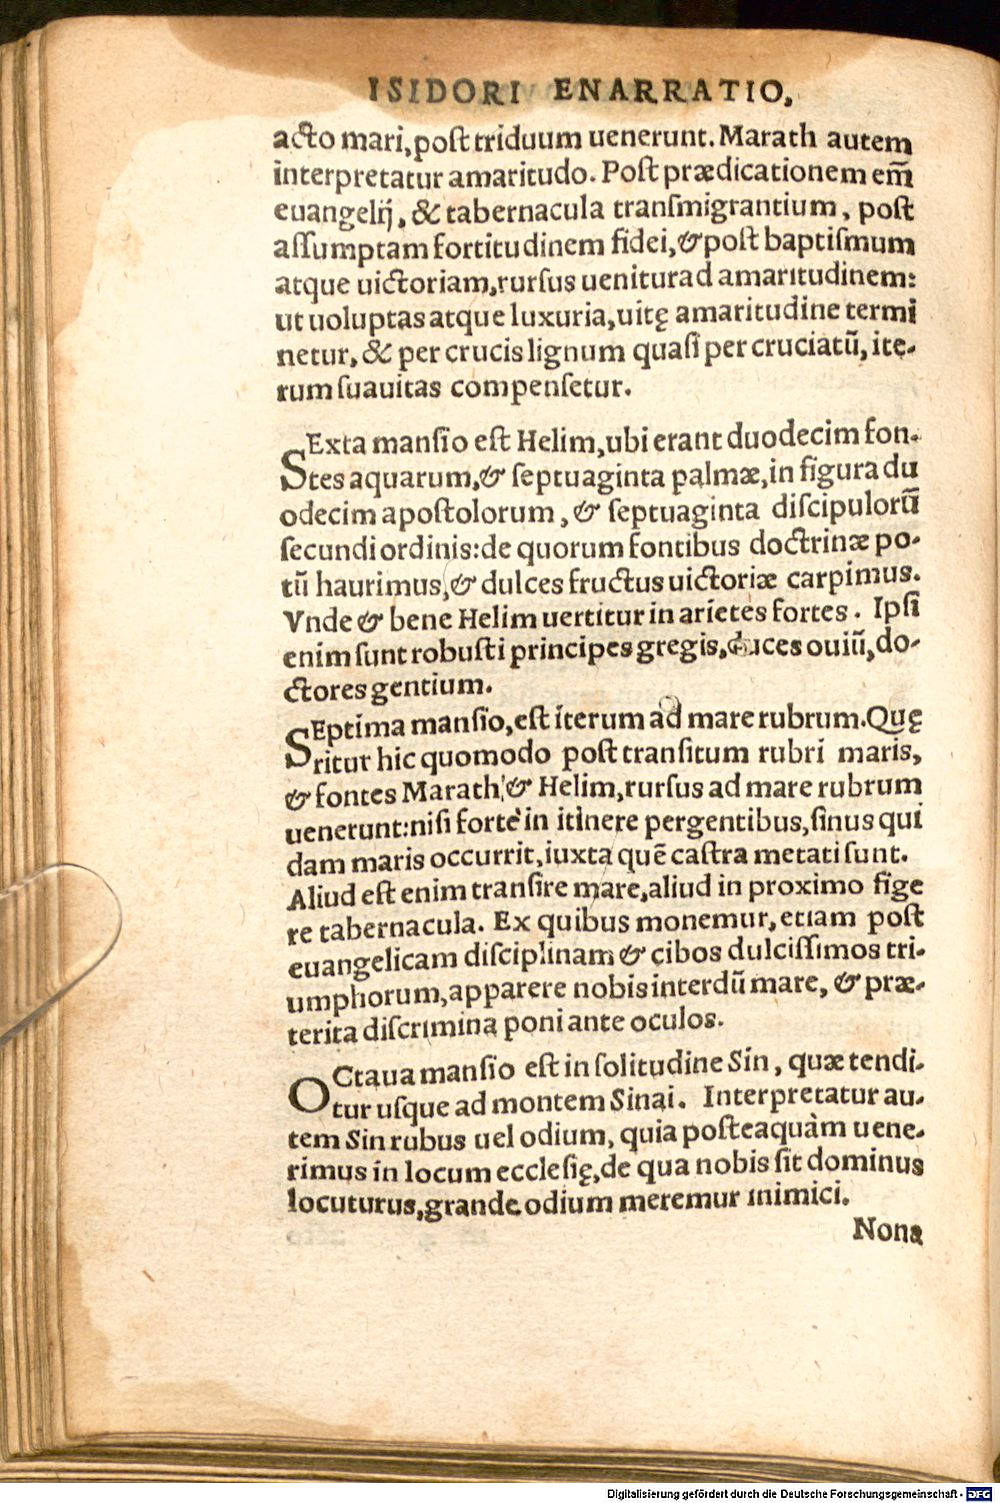 ISIDORI ENARRATIO,
acto mari, poſt triduum uenerunt. Marath autem
interpretatur amaritudo. Poſt prædicationem em̃
euangelij, & tabernacula tranſmigrantium, poſt
aſſumptam fortitudinem fidei, & poſt baptiſmum
atque uictoriam, rurſus uenitur ad amaritudinem:
ut uoluptas atque luxuria, uitę amaritudine termi
netur, & per crucis lignum quaſi per cruciatũ, ite-
rum ſuauitas compenſetur.
SExta manſio eſt Helim, ubi erant duodecim fon-
tes aquarum, & ſeptuaginta palmæ, in figura du
odecim apoſtolorum, & ſeptuaginta diſcipulorũ
ſecundi ordinis: de quorum fontibus doctrinæ po-
tũ haurimus, & dulces fructus uictoriæ carpimus.
Vnde & bene Helim uertitur in arietes fortes. Ipſi
enim ſunt robuſti principes gregis, duces ouiũ, do-
ctores gentium.
SEptima manſio, eſt iterum ad mare rubrum. Quę
ritur hic quomodo poſt tranſitum rubri maris,
& fontes Marath & Helim, rurſus ad mare rubrum
uenerunt: niſi fortè in itinere pergentibus, ſinus qui
dam maris occurrit, iuxta quẽ caſtra metati ſunt.
Aliud eſt enim tranſire mare, aliud in proximo fige
re tabernacula. Ex quibus monemur, etiam poſt
euangelicam diſciplinam & cibos dulciſſimos tri-
umphorum, apparere nobis interdũ mare, & præ-
terita diſcrimina poni ante oculos.
OCtaua manſio eſt in ſolitudine Sin, quæ tendi-
tur uſque ad montem Sinai. Interpretatur au-
tem Sin rubus uel odium, quia poſteaquàm uene-
rimus in locum eccleſię, de qua nobis ſit dominus
locuturus, grande odium meremur inimici.
Nona
Digitalisierung gefördert durch die Deutsche Forschungsgemeinschaft - DFG